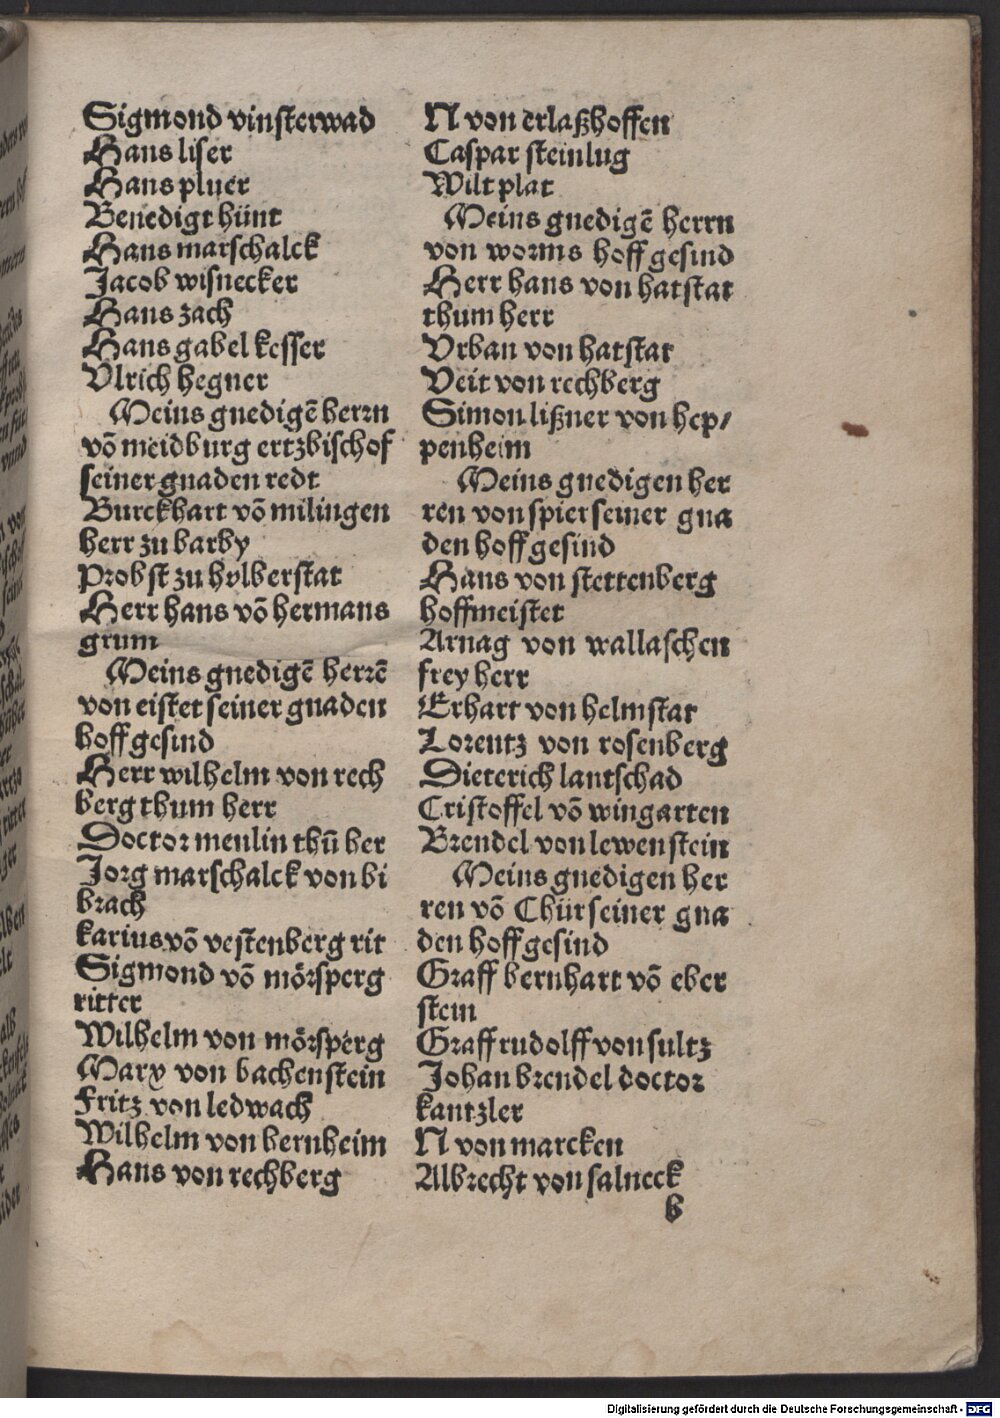 Sigmond vinsterwad
Hans liser
Hans pluer
Benedigt hünt
Hans marschalck
Jacob wisnecker
Hans zach
Hans gabel kesser
Vlrich hegner
Meius gnedigē herrn
vō meidburg ertzbischof
seiner gnaden redt
Burckhart vō milingen
herr zu barby
Probst zu holberstat
Herr hans vō hermans
grum
Meins gnedigē herrē
von eistet seiner gnaden
hoff gesind
Herr wilhelm von rech
berg thum herr
Doctor menlin thū her
Jorg marschalck von bi
brach
karius vō vestenberg rit
Sigmond vō mörsperg
ritter
Wilhelm von mörsperg
Marx von bachenstein
Fritz von ledwach
Wilhelm von bernheim
Hans von rechberg
N von erlaßhoffen
Caspar steinlug
Wilt plat
Meins gnedigē herrn
von worms hoff gesind
Herr hans von hatstat
thum herr
Vrban von hatstat
Veit von rechberg
Simon lißner von hep/
penheim
Meins gnedigen her
ren von spier seiner gna
den hoff gesind
Hans von stettenberg
hoffmeister
Arnag von wallaschen
frey herr
Erhart von helmstat
Lorentz von rosenberg
Dieterich lantschad
Cristoffel vō wingarten
Brendel von lewenstein
Meins gnedigen her
ren vō Chür seiner gna
den hoff gesind
Graff bernhart vō eber
stein
Graff rudolff von sultz
Johan brendel doctor
kantzler
N von marcken
Albrecht von salneck
b
Digitalisierung gefördert durch die Deutsche Forschungsgemeinschaft - DFG